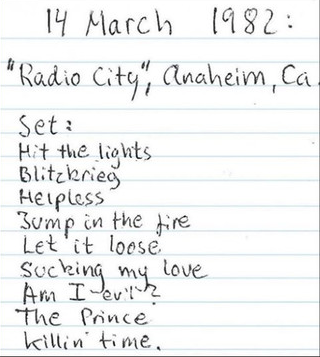 14 March 1982:
"Radio City", Anaheim, Ca.
Set:
Hit the lights
Blitzkrieg
Helpless
Jump in the fire
Let it loose
Sucking my love
Am I evil?
The Prince
Killin' time.